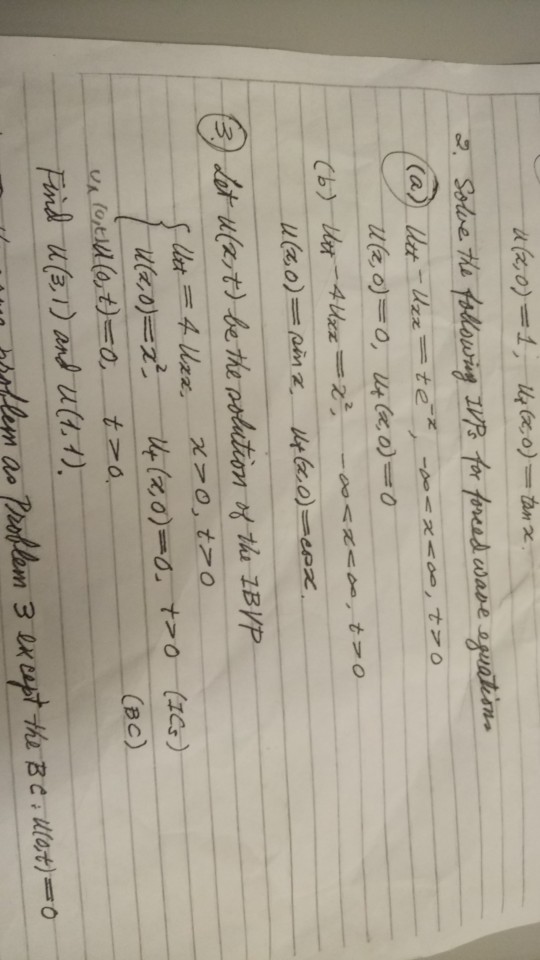 u(x,0)=1, u_t(x,0)=tan x.
2. Solve the following IVPs for forced wave equations
(a.) u_tt - u_xx = t e^{-x}, -∞<x<∞, t>0
u(x,0)=0, u_t(x,0)=0
(b) u_tt - 4u_xx = x², -∞<x<∞, t>0
u(x,0)=sin x, u_t(x,0)=cos x.
(3.) Let u(x,t) be the solution of the IBVP
{ u_tt = 4 u_xx, x>0, t>0
u(x,0)=x², u_t(x,0)=0, t>0 (ICs)
u(0,t)=0, t>0. (BC)
Find u(3,1) and u(1,1).
problem as Problem 3 except the BC: u(0,t)=0